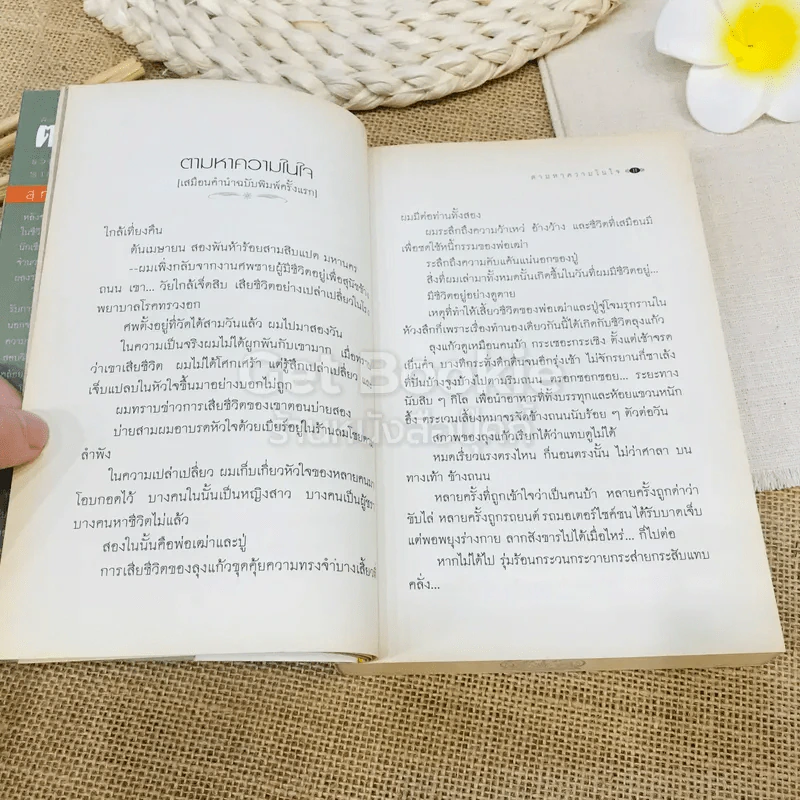 ตามหาความในใจ
[เสมือนคำนำฉบับพิมพ์ครั้งแรก]
ใกล้เที่ยงคืน
ต้นเมษายน สองพันห้าร้อยสามสิบแปด มหานคร
--ผมเพิ่งกลับจากงานศพชายผู้มีชีวิตอยู่เพื่อสุนัขข้าง
ถนน เขา... วัยใกล้เจ็ดสิบ เสียชีวิตอย่างเปล่าเปลี่ยวในโรง
พยาบาลโรคทรวงอก
ศพตั้งอยู่ที่วัดได้สามวันแล้ว ผมไปมาสองวัน
ในความเป็นจริงผมไม่ได้ผูกพันกับเขามาก เมื่อทราบ
ว่าเขาเสียชีวิต ผมไม่ได้โศกเศร้า แต่รู้สึกเปล่าเปลี่ยว และ
เจ็บแปลบในหัวใจขึ้นมาอย่างบอกไม่ถูก
ผมทราบข่าวการเสียชีวิตของเขาตอนบ่ายสอง
บ่ายสามผมอาบรดหัวใจด้วยเบียร์อยู่ในร้านถมไชยตาม
ลำพัง
ในความเปล่าเปลี่ยว ผมเก็บเกี่ยวหัวใจของหลายคนมา
โอบกอดไว้ บางคนในนั้นเป็นหญิงสาว บางคนเป็นผู้ชรา
บางคนหาชีวิตไม่แล้ว
สองในนั้นคือพ่อเฒ่าและปู่
การเสียชีวิตของลุงแก้วขุดคุ้ยความทรงจำบางเสี้ยวที่
ตามหาความในใจ
ผมมีต่อท่านทั้งสอง
ผมระลึกถึงความว้าเหว่ อ้างว้าง และชีวิตที่เสมือนมี
เพื่อชดใช้หนี้กรรมของพ่อเฒ่า
ระลึกถึงความคับแค้นแน่นอกของปู่
สิ่งที่ผมเล่ามาทั้งหมดนั้นเกิดขึ้นในวันที่ผมมีชีวิตอยู่...
มีชีวิตอยู่อย่างดูดาย
เหตุที่ทำให้เสี้ยวชีวิตของพ่อเฒ่าและปู่จู่โจมรุกรานใน
ห้วงลึกก็เพราะเรื่องทำนองเดียวกันนี้ได้เกิดกับชีวิตลุงแก้ว
ลุงแก้วดูเหมือนคนบ้า กระเซอะกระเซิง ตั้งแต่เช้าจรด
เป็นค่ำ บางทีกระทั่งดึกดื่นจนอีกรุ่งเช้า ไม่จักรยานก็ซาเล้ง
ที่ปั่นบ้างจูงบ้างไปตามริมถนน ตรอกซอกซอย... ระยะทาง
นับสิบ ๆ กิโล เพื่อนำอาหารที่ทั้งบรรทุกและห้อยแขวนหนัก
อึ้ง ตระเวนเลี้ยงหมาจรจัดข้างถนนนับร้อย ๆ ตัวต่อวัน
สภาพของลุงแก้วเรียกได้ว่าแทบดูไม่ได้
หมดเรี่ยวแรงตรงไหน ก็นอนตรงนั้น ไม่ว่าศาลา บน
ทางเท้า ข้างถนน
หลายครั้งที่ถูกเข้าใจว่าเป็นคนบ้า หลายครั้งถูกด่าว่า
ขับไล่ หลายครั้งถูกรถยนต์ รถมอเตอร์ไซค์ชน ได้รับบาดเจ็บ
แต่พอพยุงร่างกาย ลากสังขารไปได้เมื่อไหร่... ก็ไปต่อ
หากไม่ได้ไป รุ่มร้อนกระวนกระวายกระส่ายกระสับแทบ
คลั่ง...
Get Bookie
ร้านหนังสือมือสอง